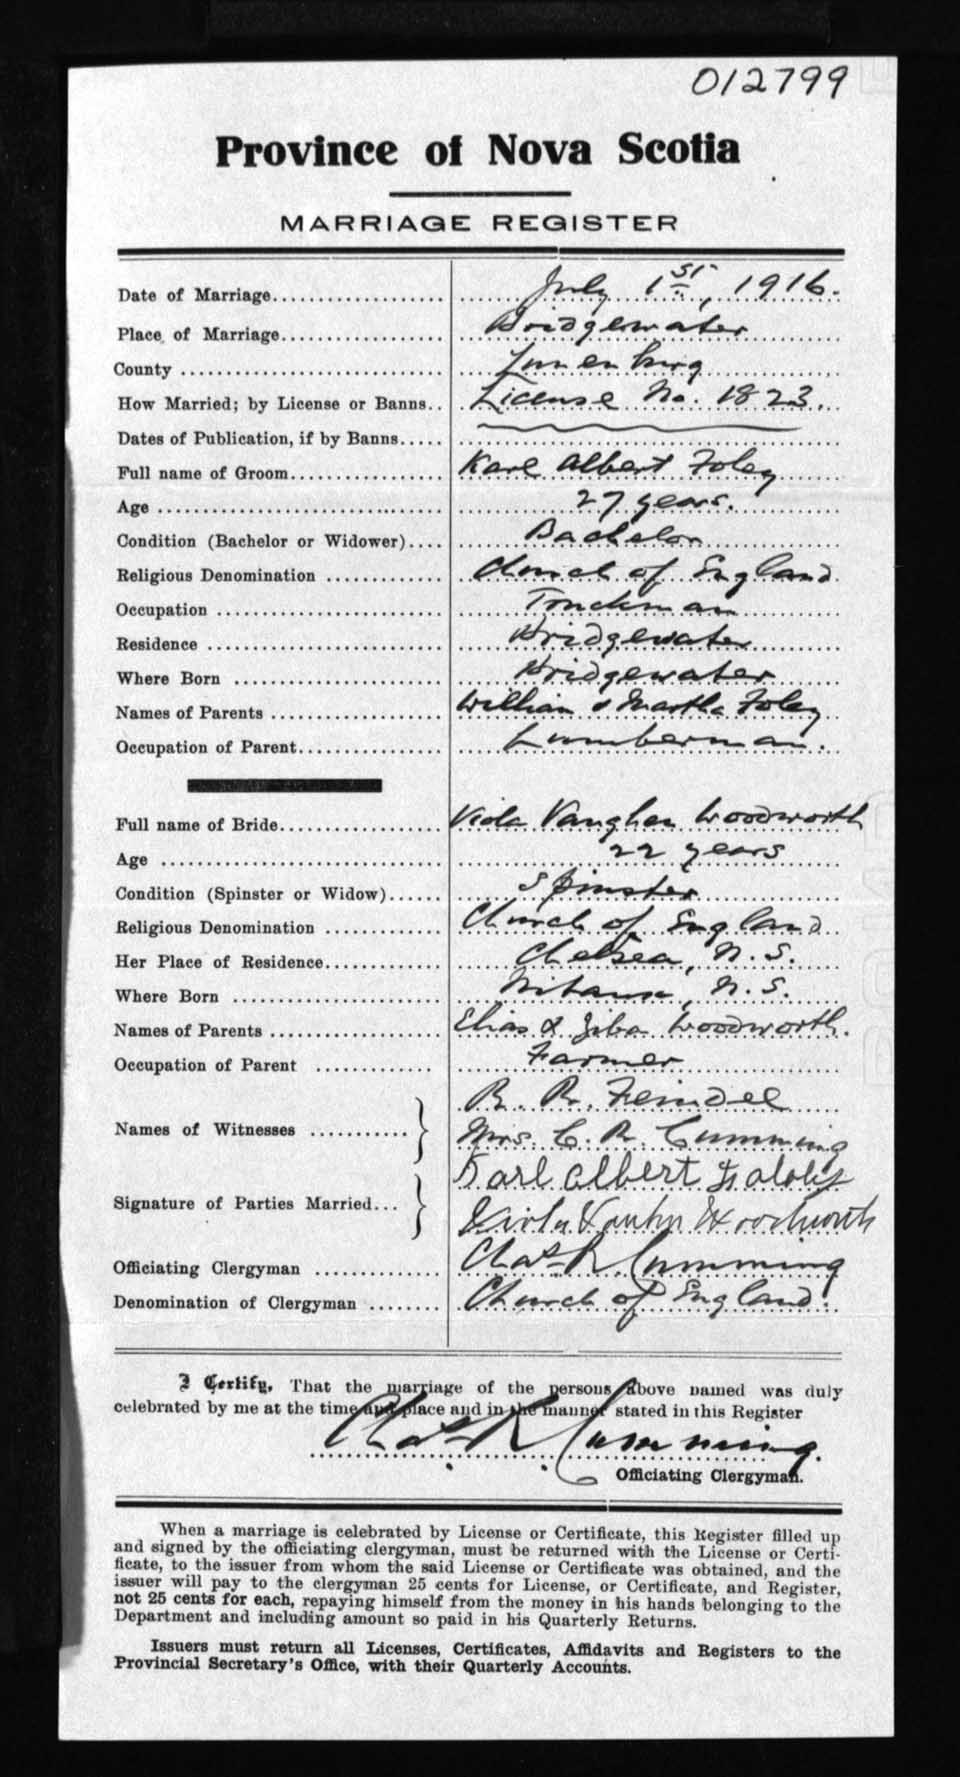 012799
Province of Nova Scotia
MARRIAGE REGISTER
Date of Marriage.................... July 1st, 1916.
Place of Marriage.................. Bridgewater
County ............................ Lunenburg
How Married; by License or Banns.. License No. 1823.
Dates of Publication, if by Banns.....
Full name of Groom................. Karl Albert Foley
Age ............................... 27 years.
Condition (Bachelor or Widower).... Bachelor
Religious Denomination ............. Church of England
Occupation ........................ Truckman
Residence ......................... Bridgewater
Where Born ........................ Bridgewater
Names of Parents .................. William & Martha Foley
Occupation of Parent................ Lumberman.
Full name of Bride.................. Viola Vaughan Woodworth
Age ............................... 22 years
Condition (Spinster or Widow)...... Spinster
Religious Denomination ............. Church of England
Her Place of Residence.............. Chelsea, N. S.
Where Born ........................ N. S.
Names of Parents .................. Elias & Ziba Woodworth.
Occupation of Parent .............. Farmer
R. R. Feindel
Names of Witnesses ........... Mrs. C. R. Cumming
Karl Albert
Signature of Parties Married...
Woodworth
Officiating Clergyman .............. Chas R. Cumming
Denomination of Clergyman ........ Church of England.
I Certify, That the marriage of the persons above named was duly
celebrated by me at the time and place and in the manner stated in this Register
Chas R. Cumming.
Officiating Clergyman.
When a marriage is celebrated by License or Certificate, this Register filled up
and signed by the officiating clergyman, must be returned with the License or Certi-
ficate, to the issuer from whom the said License or Certificate was obtained, and the
issuer will pay to the clergyman 25 cents for License, or Certificate, and Register,
not 25 cents for each, repaying himself from the money in his hands belonging to the
Department and including amount so paid in his Quarterly Returns.
Issuers must return all Licenses, Certificates, Affidavits and Registers to the
Provincial Secretary's Office, with their Quarterly Accounts.